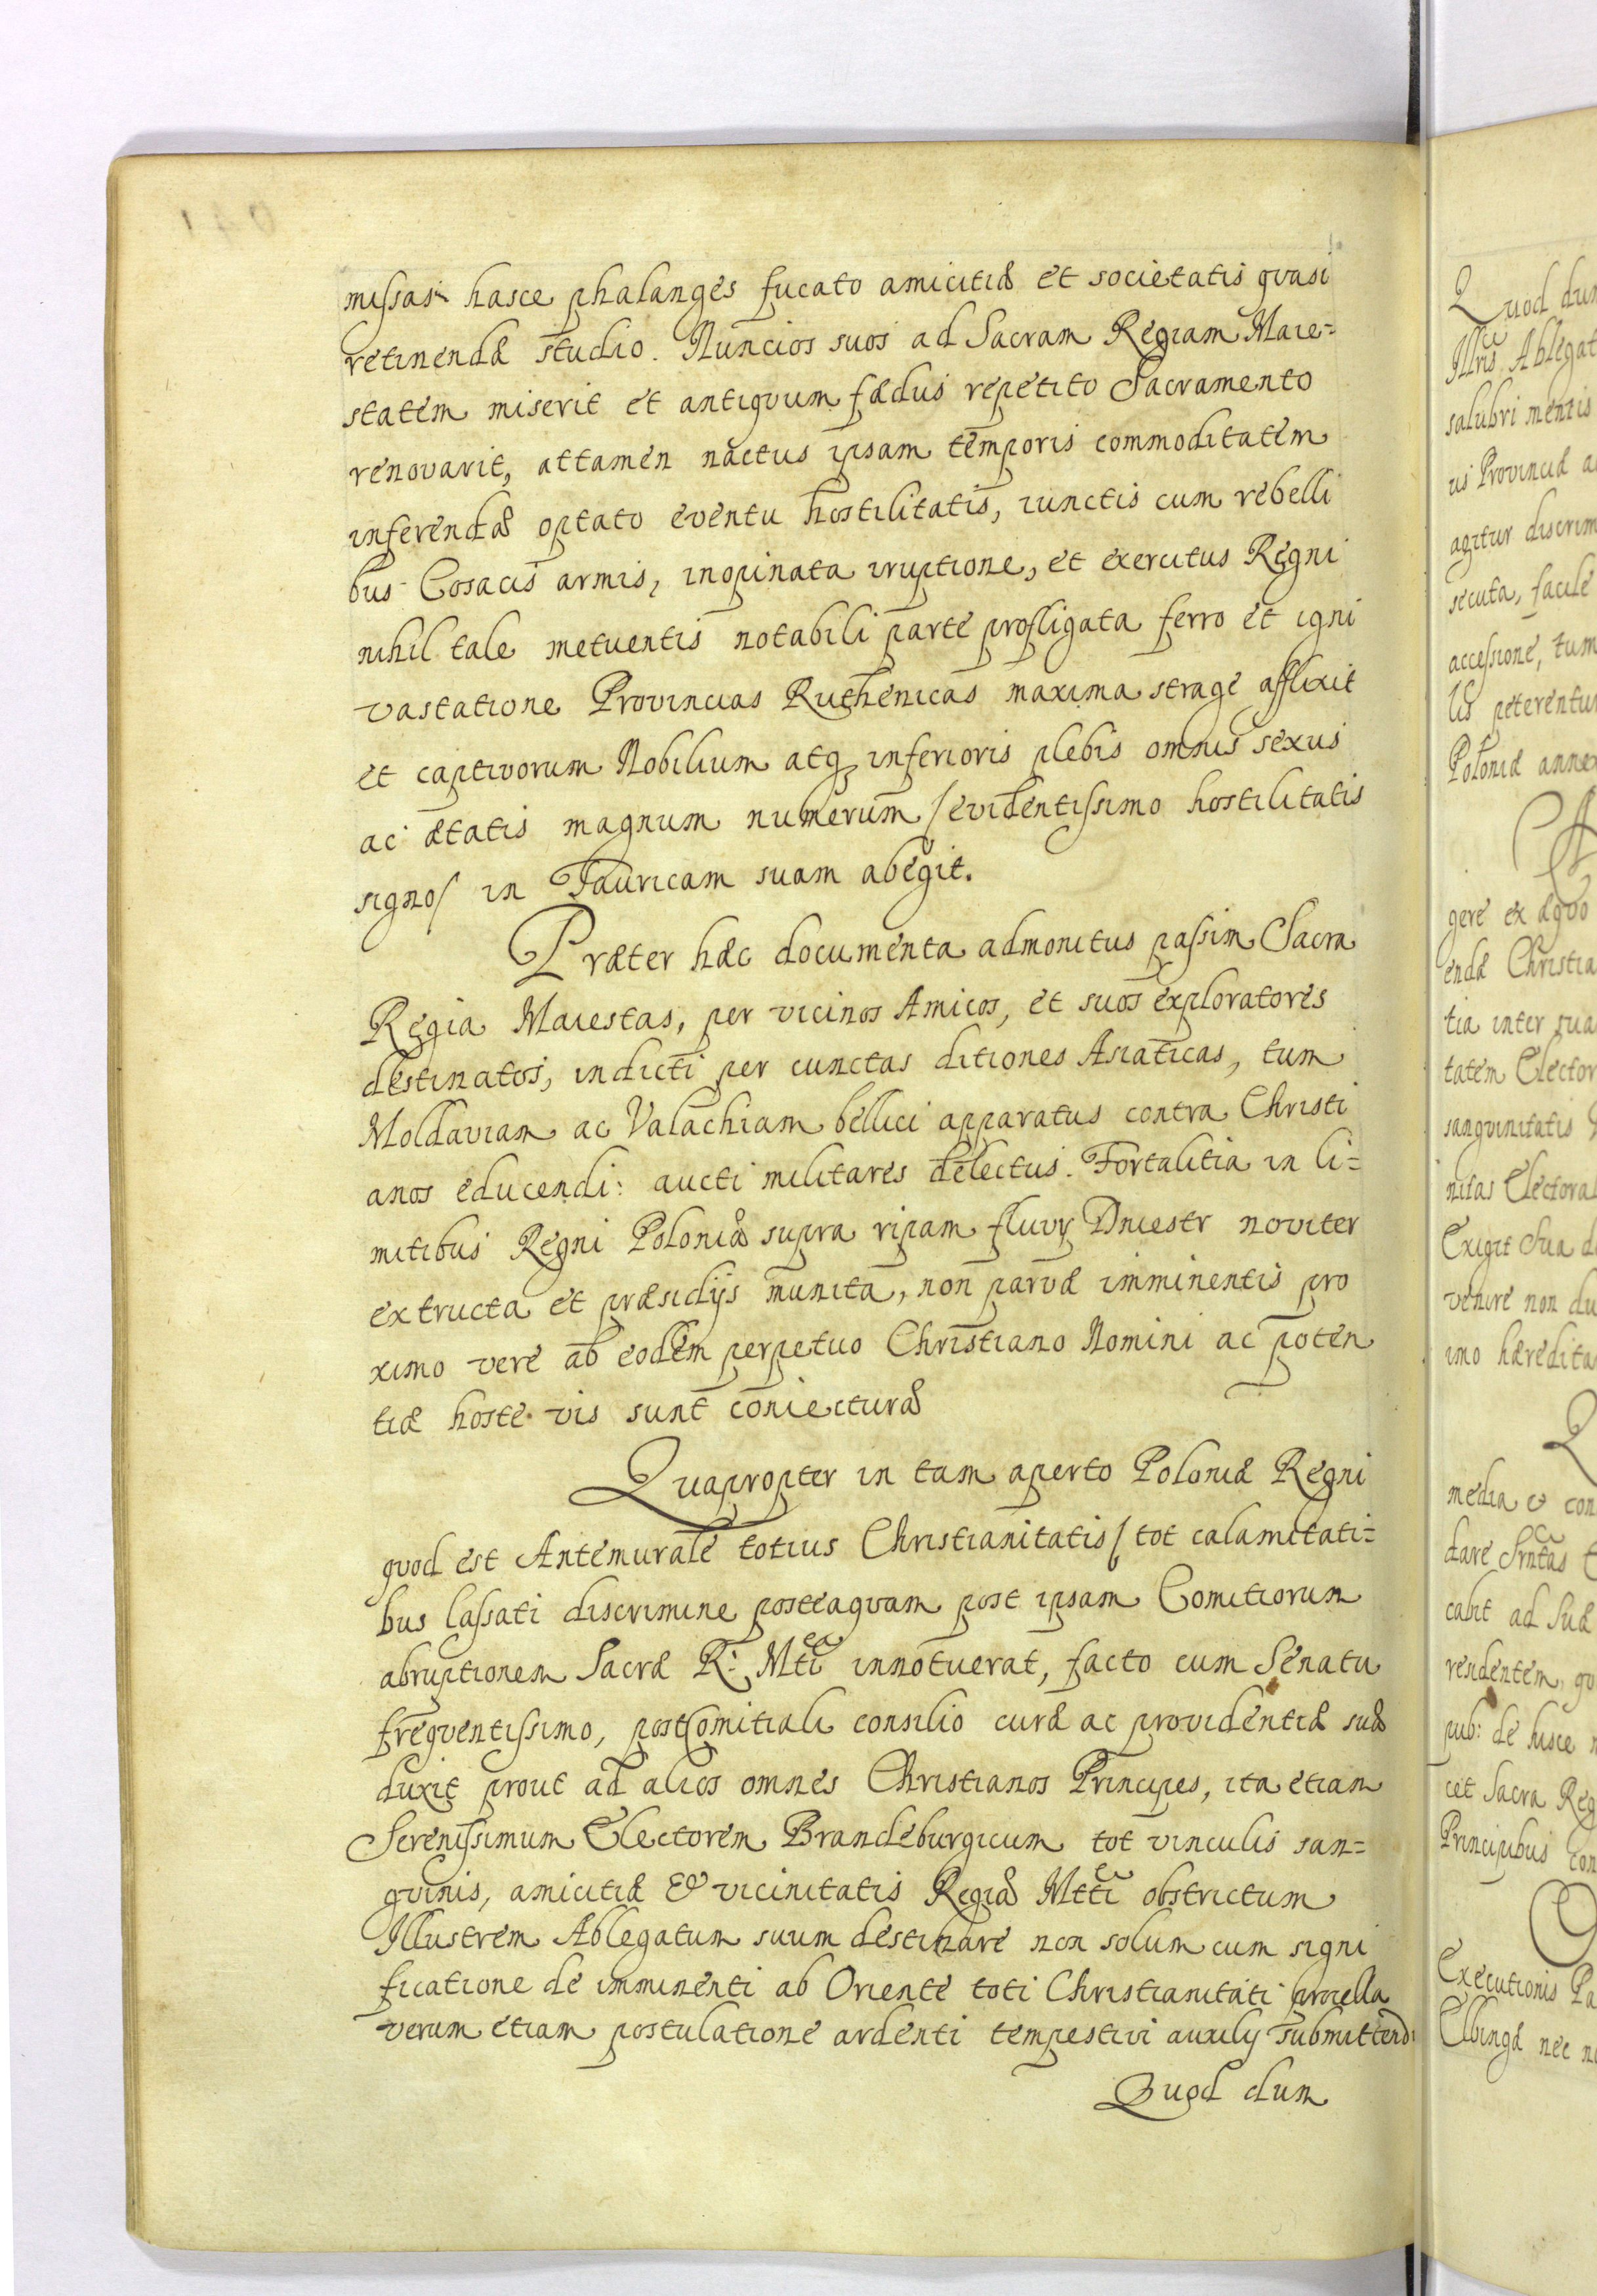 missas hasce phalanges fucato amicitiæ et societatis quasi
retinendæ studio. Nuncios suos ad Sacram Regiam Maie=
statem miserit et antiquum fædus repetito Sacramento
renovarit, attamen nactus ipsam temporis commoditatem
inferendæ optato eventu hostilitatis, iunctis cum rebelli
bus Cosacis armis, inopinata iruptione, et exercitus Regni
nihil tale metuentis notabili parte profligata ferro et igni
vastatione Provincias Ruthenicas maxima strage afflixit
et captivorum Nobilium atq inferioris plebis omnis sexus
ac ætatis magnum numerum /evidentissimo hostilitatis
signo/ in Tauricam suam abegit.
Præter hæc documenta admonitus passim Sacra
Regia Maiestas, per vicinos Amicos, et suos exploratores
destinatos, indicti per cunctas ditiones Asiaticas, tum
Moldaviam ac Valachiam bellici apparatus contra Christi
anos educendi: aucti militares delectus. Fortalitia in li=
mitibus Regni Poloniæ supra ripam fluvÿ Dniestr noviter
extructa et præsidijs munita, non parvæ imminentis pro
ximo vere ab eodem perpetuo Christiano Nomini ac poten
tiæ hoste vis sunt coniecturæ
Quapropter in tam aperto Poloniæ Regni
quod est Antemurale totius Christianitatis/ tot calamitati=
bus lassati discrimine posteaquam post ipsam Comitiorum
abruptionem Sacræ R: Mtti innotuerat, facto cum Senatu
frequentissimo, postComitiali consilio curæ ac providentiæ suæ
duxit prout ad alios omnes Christianos Principes, ita etiam
Serenissimum Electorem Brandeburgicum tot vinculis san=
guinis, amicitiæ & vicinitatis Regiæ Mtti obstrictum
Illustrem Ablegatum suum destinare non solum cum signi
ficatione de imminenti ab Oriente toti Christianitati procella
verum etiam postulatione ardenti tempestivi auxilÿ submittendi
Quod dum